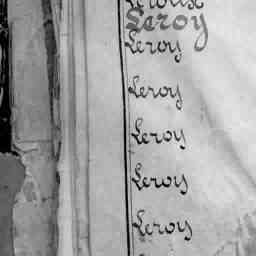 Leroux
Leroy
Leroy
Leroy
Leroy
Leroy
Leroy